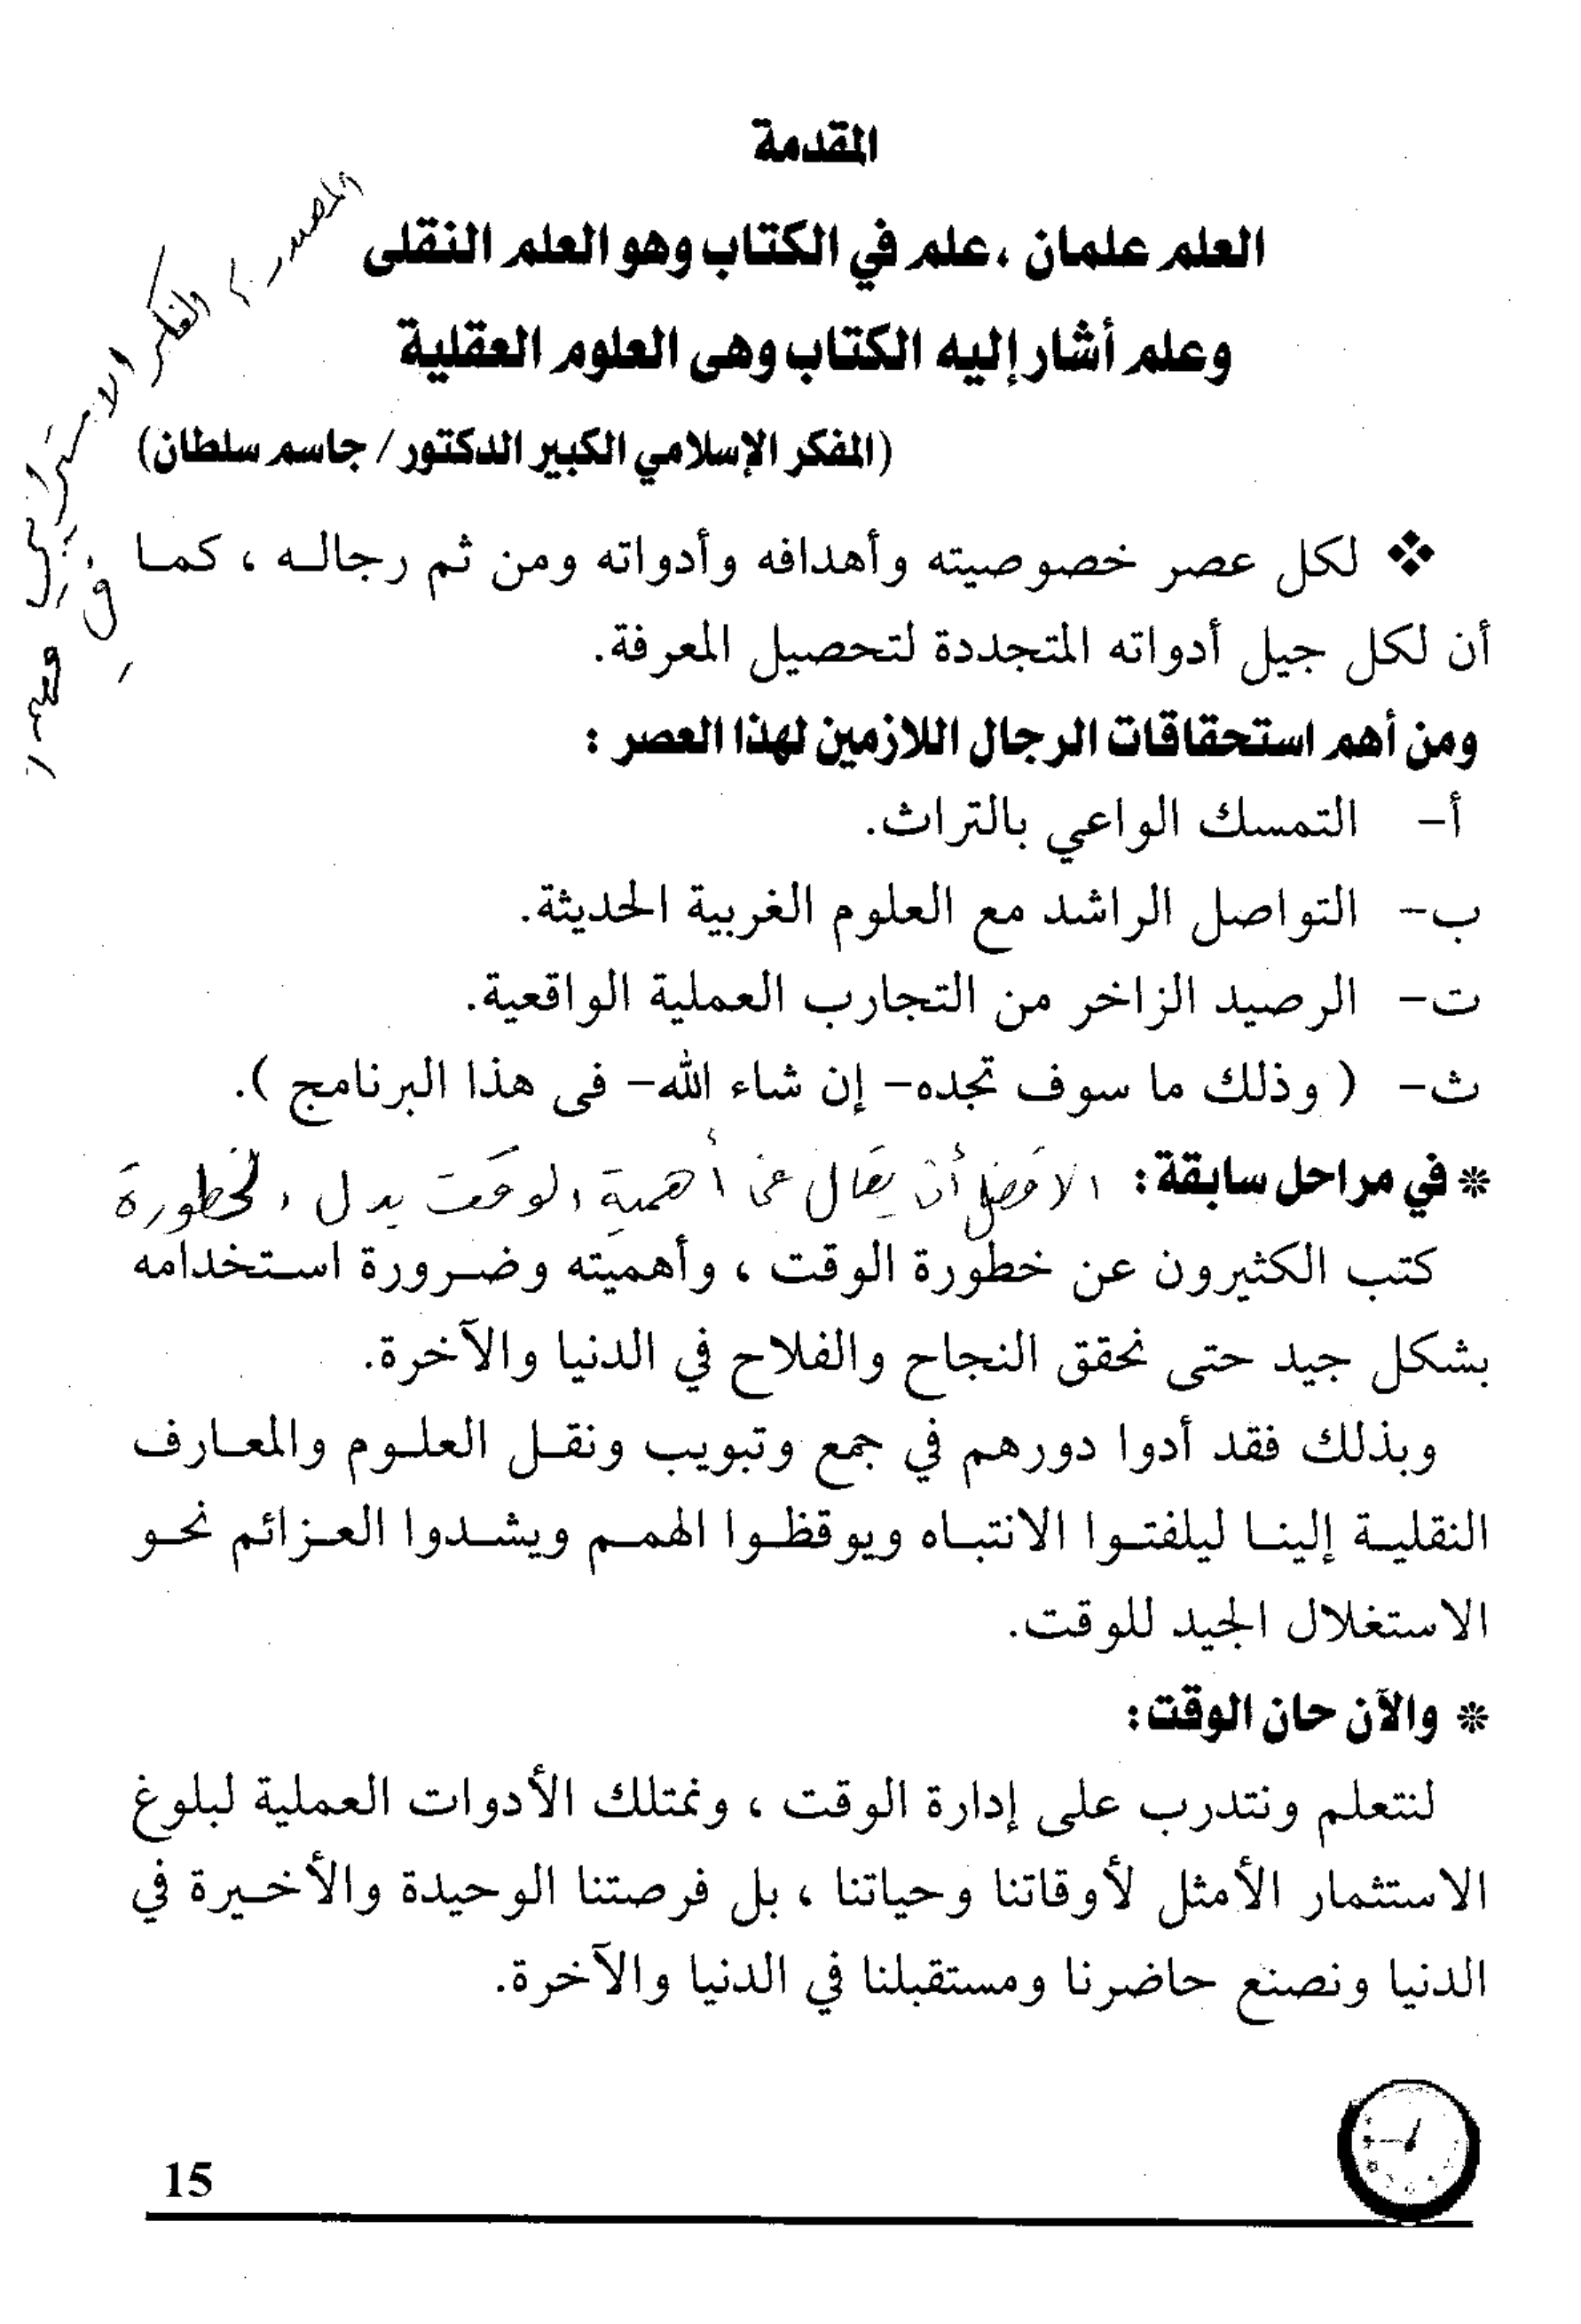 المقدمة
العلم علمان ، علم في الكتاب وهو العلم النقلى
وعلم أشار إليه الكتاب وهى العلوم العقلية
(المفكر الإسلامي الكبير الدكتور / جاسم سلطان)
المصدر : الفكر الاستراتيجي في فهم
❖ لكل عصر خصوصيته وأهدافه وأدواته ومن ثم رجاله ، كما
أن لكل جيل أدواته المتجددة لتحصيل المعرفة.
ومن أهم استحقاقات الرجال اللازمين لهذا العصر :
أ- التمسك الواعي بالتراث.
ب- التواصل الراشد مع العلوم الغربية الحديثة.
ت- الرصيد الزاخر من التجارب العملية الواقعية.
ث- ( وذلك ما سوف تجده- إن شاء الله- فى هذا البرنامج ).
* في مراحل سابقة : الافضل أن يقال عن أهمية الوقت بدل الخطورة
كتب الكثيرون عن خطورة الوقت ، وأهميته وضرورة استخدامه
بشكل جيد حتى نحقق النجاح والفلاح في الدنيا والآخرة.
وبذلك فقد أدوا دورهم في جمع وتبويب ونقل العلوم والمعارف
النقلية إلينا ليلفتوا الانتباه ويوقظوا الهمم ويشدوا العزائم نحو
الاستغلال الجيد للوقت.
* والآن حان الوقت :
لنتعلم ونتدرب على إدارة الوقت ، ونمتلك الأدوات العملية لبلوغ
الاستثمار الأمثل لأوقاتنا وحياتنا ، بل فرصتنا الوحيدة والأخيرة في
الدنيا ونصنع حاضرنا ومستقبلنا في الدنيا والآخرة.
15